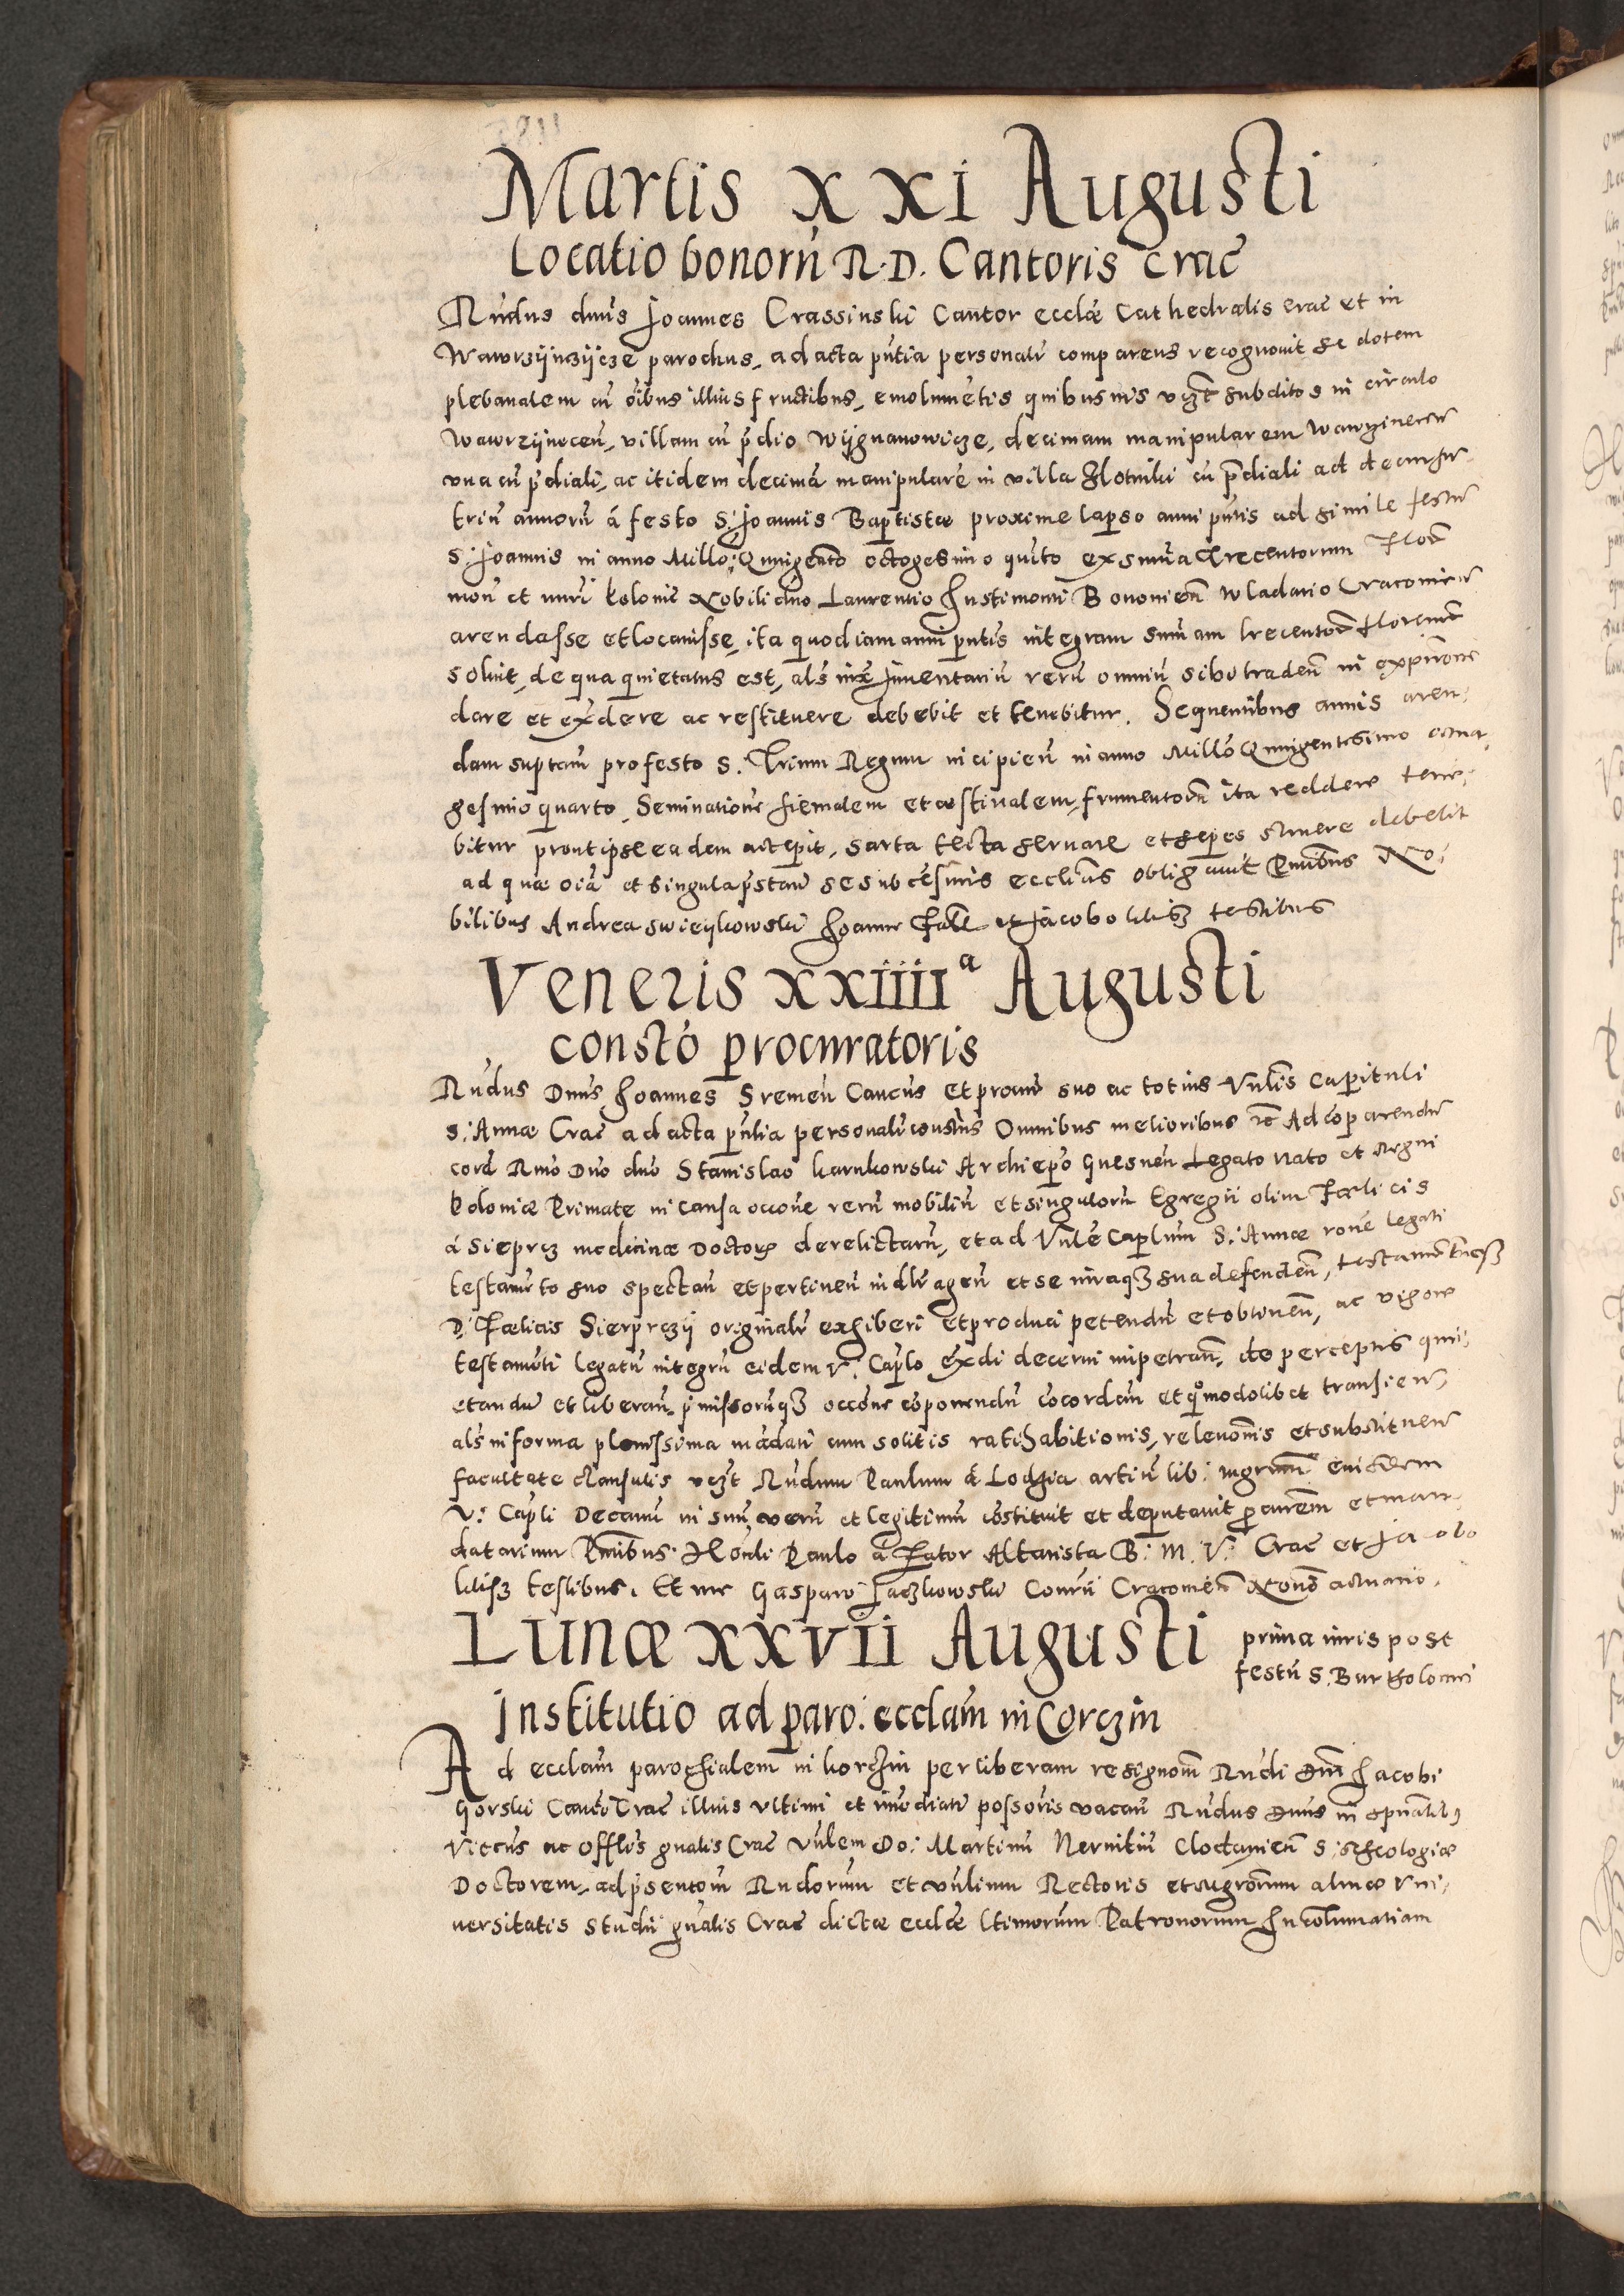 Martis XXI Augusti
Locatio bonorū R. D. Cantoris Crac̄
Rndus dnus Joannes Crassinski Cantor ecclæ Cathedralis crac̄ et in
Wawrzijnczijcze parochus, ad acta pntia personalr comparens recognovit se dotem
plebanalem cū oībus illius fructibus, emolumētis quibusuis vigzt subditos in circulo
Wawrzijnocen, villam cū pdio Wijgnanowicze, decimam manipularem
una cū pdiali, ac itidem decimā manipularē in villa Zlotniki cū pdiali ad decursū
triū annorū á festo S: Joannis Baptistæ proxime lapso anni pntis ad simile festū
S: Joannis in anno Millo: Quingento octogesimo quīto ex summa trecentorum Floꝝ
mon et nūri Poloniæ Nobili dno Laurentio Justimonti Bononien Wladario Cracovien
arendasse et locavisse, ita quod iam anni pntis integram summam trecentoꝝ florenoꝝ
solvit, de qua quietatus est, als iuxta Inventariū rerū omniū sibi traden in
dare et exdere ac restituere debebit et tenebitur. Sequentibus annis aren:
dam suptam pro festo S. Trium Regum incipien in anno Millo Quingentesimo octua
gesimo quarto, Seminationē hiemalem et æstivalem, frumentorū ita reddere tene:
bitur prout ipse eadem accepit, sarta tecta servare et sepes struere debebit
ad quæ oīa et singula pstan se sub censuris ecclīcis obligavit Pntibus No:
bilibus Andrea Swieijkowski Joanne et Jacobo testibus
Veneris XXIIIIᵃ Augusti
constō procuratoris
Rndus Dnus Joannes Sremen Cancus et procur suo ac totius Vnlis Capituli
S: Annæ Crac̄ ad acta pntia personalr constūs Omnibus melioribus etc Ad cōparendū
corā Rmo Dno dno Stanislao Karnkowski Archiepō Gnesnen Legato nato et Regni
Poloniæ Primate in causa occōne rerū mobiliū et singulorū Egregii olim Fælicis
á Sieprcz medicinæ Doctoris derelictarū, et ad Vnle Caplum S: Annæ ronē legati
testamēto suo spectan et pertinen indlr agen et se iuraqꝫ sua defenden, testamentūqꝫ
D: Fælicis Sierprczij originalr exhiberi et produci petendū et obtinen, ac vigore
testamēti legatū integrū eidem V: Caplo exdi decerni impetran, de perceptis qui:
etandū et liberan, pmissorūqꝫ occōne cōponendū cōcordan et quōmodolibet transien,
als in forma plenissima mādati cum solitis ratihabitionis, relevōnis et substituen
facultate clausulis vigzt Rndum Paulum á Lodzia artiū lib: mgrum eiusdem
V: Capli Decanū in suū verū et legitimū cōstituit et deputavit procurēm et man:
datarium Pntibus: Honli Paulo á Zator Altarista B: M: V: Crac̄ et Jacobo
testibus. Et me Gasparo Jaczkowski Conrii Cracovien Nōno actuario.
Lunæ XXVII Augusti prima iuris post
festū S. Bartholomei
Institutio ad paro: ecclam in Corczin
Ad ecclam parochialem in Korczin per liberam resignōm Rndi Dni Jacobi
Gorski Canci Crac̄ illius ultimi et imediate possōris vacan Rndus Dnus in spūalibꝫ
Viccus ac Offlis gnalis Crac̄ Vnlem Do: Martinū S: theologiæ
Doctorem, ad psentōm Rndorum et Vnlium Rectoris et mgrōrum almæ Vni:
versitatis studii gnalis Crac̄ dictæ ecclæ ltimorum Patronorum